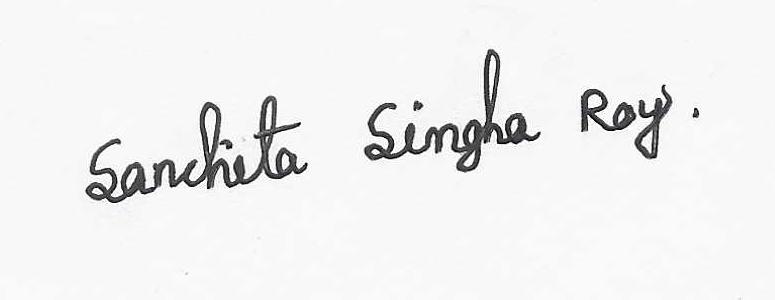 Sancheta Singha Roy.